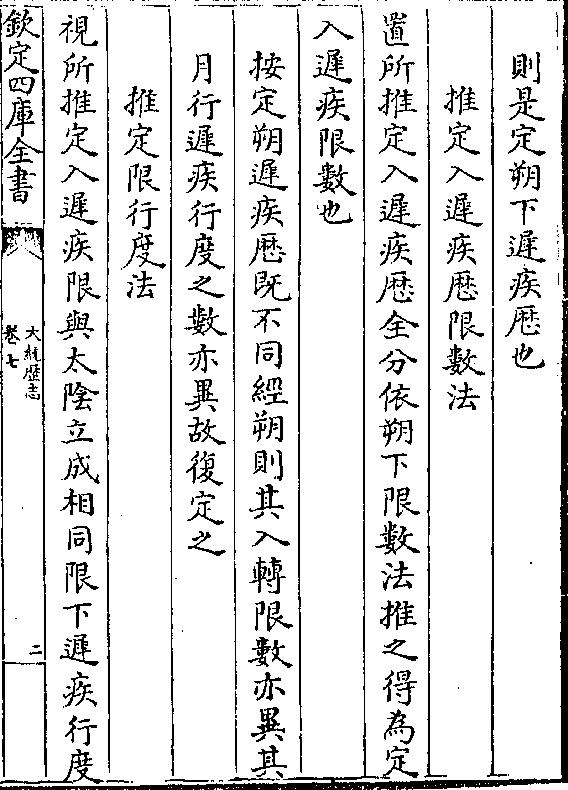 則是定朔下遲疾厯也
推定入遲疾厯限數法
置所推定入遲疾厯全分依朔下限數法推之得為定
入遲疾限數也
按定朔遲疾厯既不同經朔則其入轉限數亦異其
月行遲疾行度之數亦異故復定之
推定限行度法
視所推定入遲疾限與太陰立成相同限下遲疾行度
欽定四庫全書
大統歷志
卷七
二